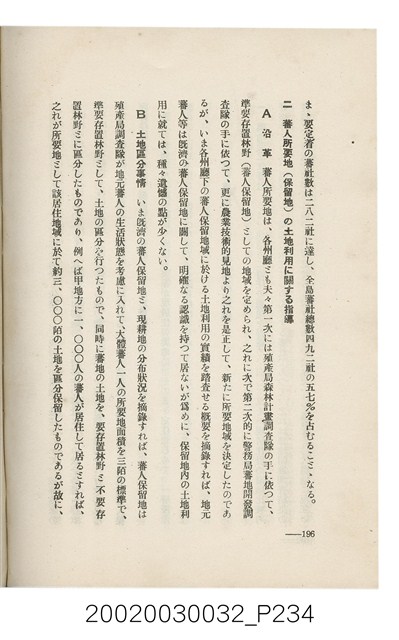 ま、要定着の蕃社數は二八二社に達し、全島蕃社總數四九二社の五七%を占むることゝなる。
二　蕃人所要地(保留地)の土地利用に關する指導
A　沿　革　蕃人所要地は、各州廳とも夫々第一次には殖產局森林計畫調査隊の手に依つて、
準要存置林野(蕃人保留地)としての地域を定められ、これに次で第二次的に警務局蕃地開發調
査隊の手に依つて、更に農業技術的見地よりこれを是正して、新たに所要地域を決定したのであ
るが、いま各州廳下の蕃人保留地域に於ける土地利用の實績を踏査せる概要を摘錄すれば、地元
蕃人等は旣濟の蕃人保留地に關して、明確なる認識を持つて居ないが爲めに、保留地內の土地利
用に就ては、種々遺憾の點が少くない。
B　土地區分事情　いま旣濟の蕃人保留地と、現耕地の分布狀況を摘錄すれば、蕃人保留地は
殖產局調査隊が地元蕃人の生活狀態を考慮に入れて、大體蕃人一人の所要地面積を三陌の標準で、
準要存置林野として、土地の區分を行つたもので、同時に蕃地の土地を、要存置林野と不要存
置林野とに區分したものであり、例へば甲地方に一、〇〇〇人の蕃人が居住して居るとすれば、
之れが所要地として該居住地域に於て約三、〇〇〇陌の土地を區分保留したものであるが故に、
196
20020030032_P234